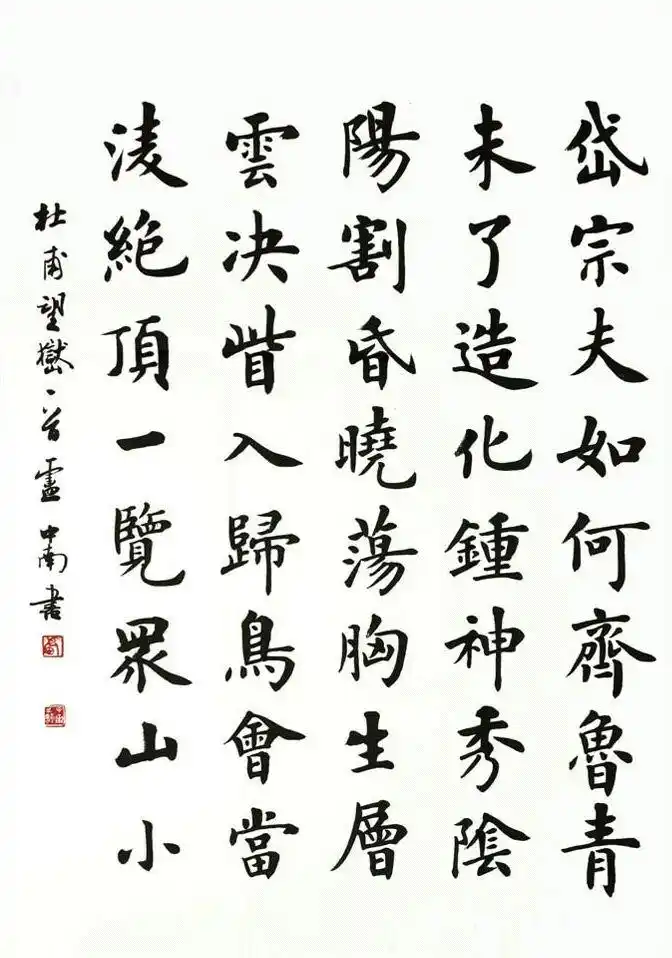 岱宗夫如何齊魯青
未了造化鍾神秀陰
陽割昏曉蕩胸生層
雲决眥入歸鳥會當
淩絕頂一覽眾山小
杜甫望嶽一首盧中南書